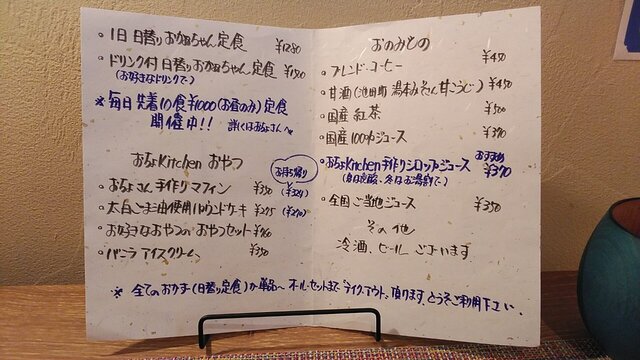 ・1日 日替り おかあちゃん 定食 ¥1280
・ドリンク付 日替り おかあちゃん 定食
(お好きなドリンクで)
※毎日 先着10食¥1000(お昼のみ)定食
開催中!!
おちょKitchen おやつ
お持ち帰り
・おちょさん手作りマフィン ¥350 (¥324)
・太白ごま油使用 ¥275 (¥270)
・お好きなおやつの おやつセット
・バニラアイスクリーム ¥350
おのみもの
・ブレンドコーヒー ¥450
・甘酒(池田町 湯本みそさん 甘こうじ) ¥450
・国産 紅茶 ¥500
・国産100%ジュース ¥390
おすすめ
・おちょKitchen手作りシロップジュース ¥390
・全国ご当地ジュース ¥350
その他
冷酒、ビール ございます
※全てのおかず(日替り定食)が単品〜オールセットまでテイクアウト頂けます。どうぞご利用下さい。